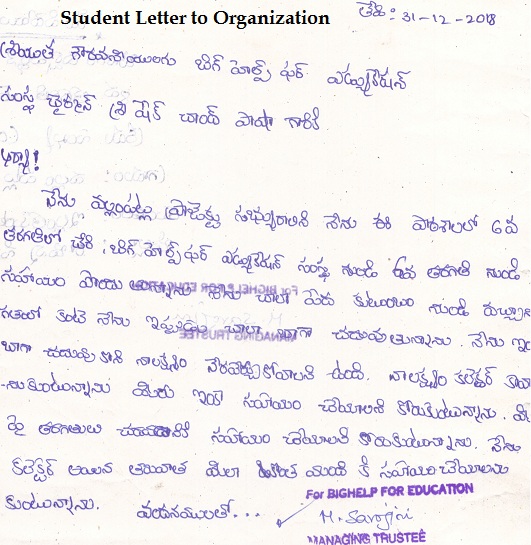 Student Letter to Organization
తేది: 31-12-2018
శ్రీయుత గౌరవనీయులగు బిగ్ హెల్ప్ ఫర్ ఎడ్యుకేషన్
సంస్థ ఛైర్మన్ శ్రీ షేక్ చాంద్ పాషా గారికి
ఆర్యా!
నేను ప్రాజెక్టు సభ్యురాలిని నేను ఈ పాఠశాలలో 6వ
తరగతిలో చేరి, బిగ్ హెల్ప్ ఫర్ ఎడ్యుకేషన్ సంస్థ నుండి 6వ తరగతి నుండి
సహాయం పొందు తున్నాను నేను చాలా పేద కుటుంబం నుండి వచ్చాను
గతంలో కంటె నేను ఇప్పుడు చాలా బాగా చదువుతున్నాను. నేను ఇం
బాగా చదువు కొని నా లక్ష్యం నెరవేర్చుకోవాలని ఉంది. నా లక్ష్యం కలెక్టర్ కావా
-నుకుంటున్నాను మీరు ఇంకా సహాయం చేయాలని కోరుకుంటున్నాను.
పై తరగతులు చదవడానికి సహాయం చేయాలని కోరుకుంటున్నాను. నేను
కలెక్టర్ అయిన తరువాత మీలా కొంత మంది కి సహాయం చేయాలను
కుంటున్నాను. వందనములతో...
For BIGHELP FOR EDUCATION
M. Sarojini
MANAGING TRUSTEE